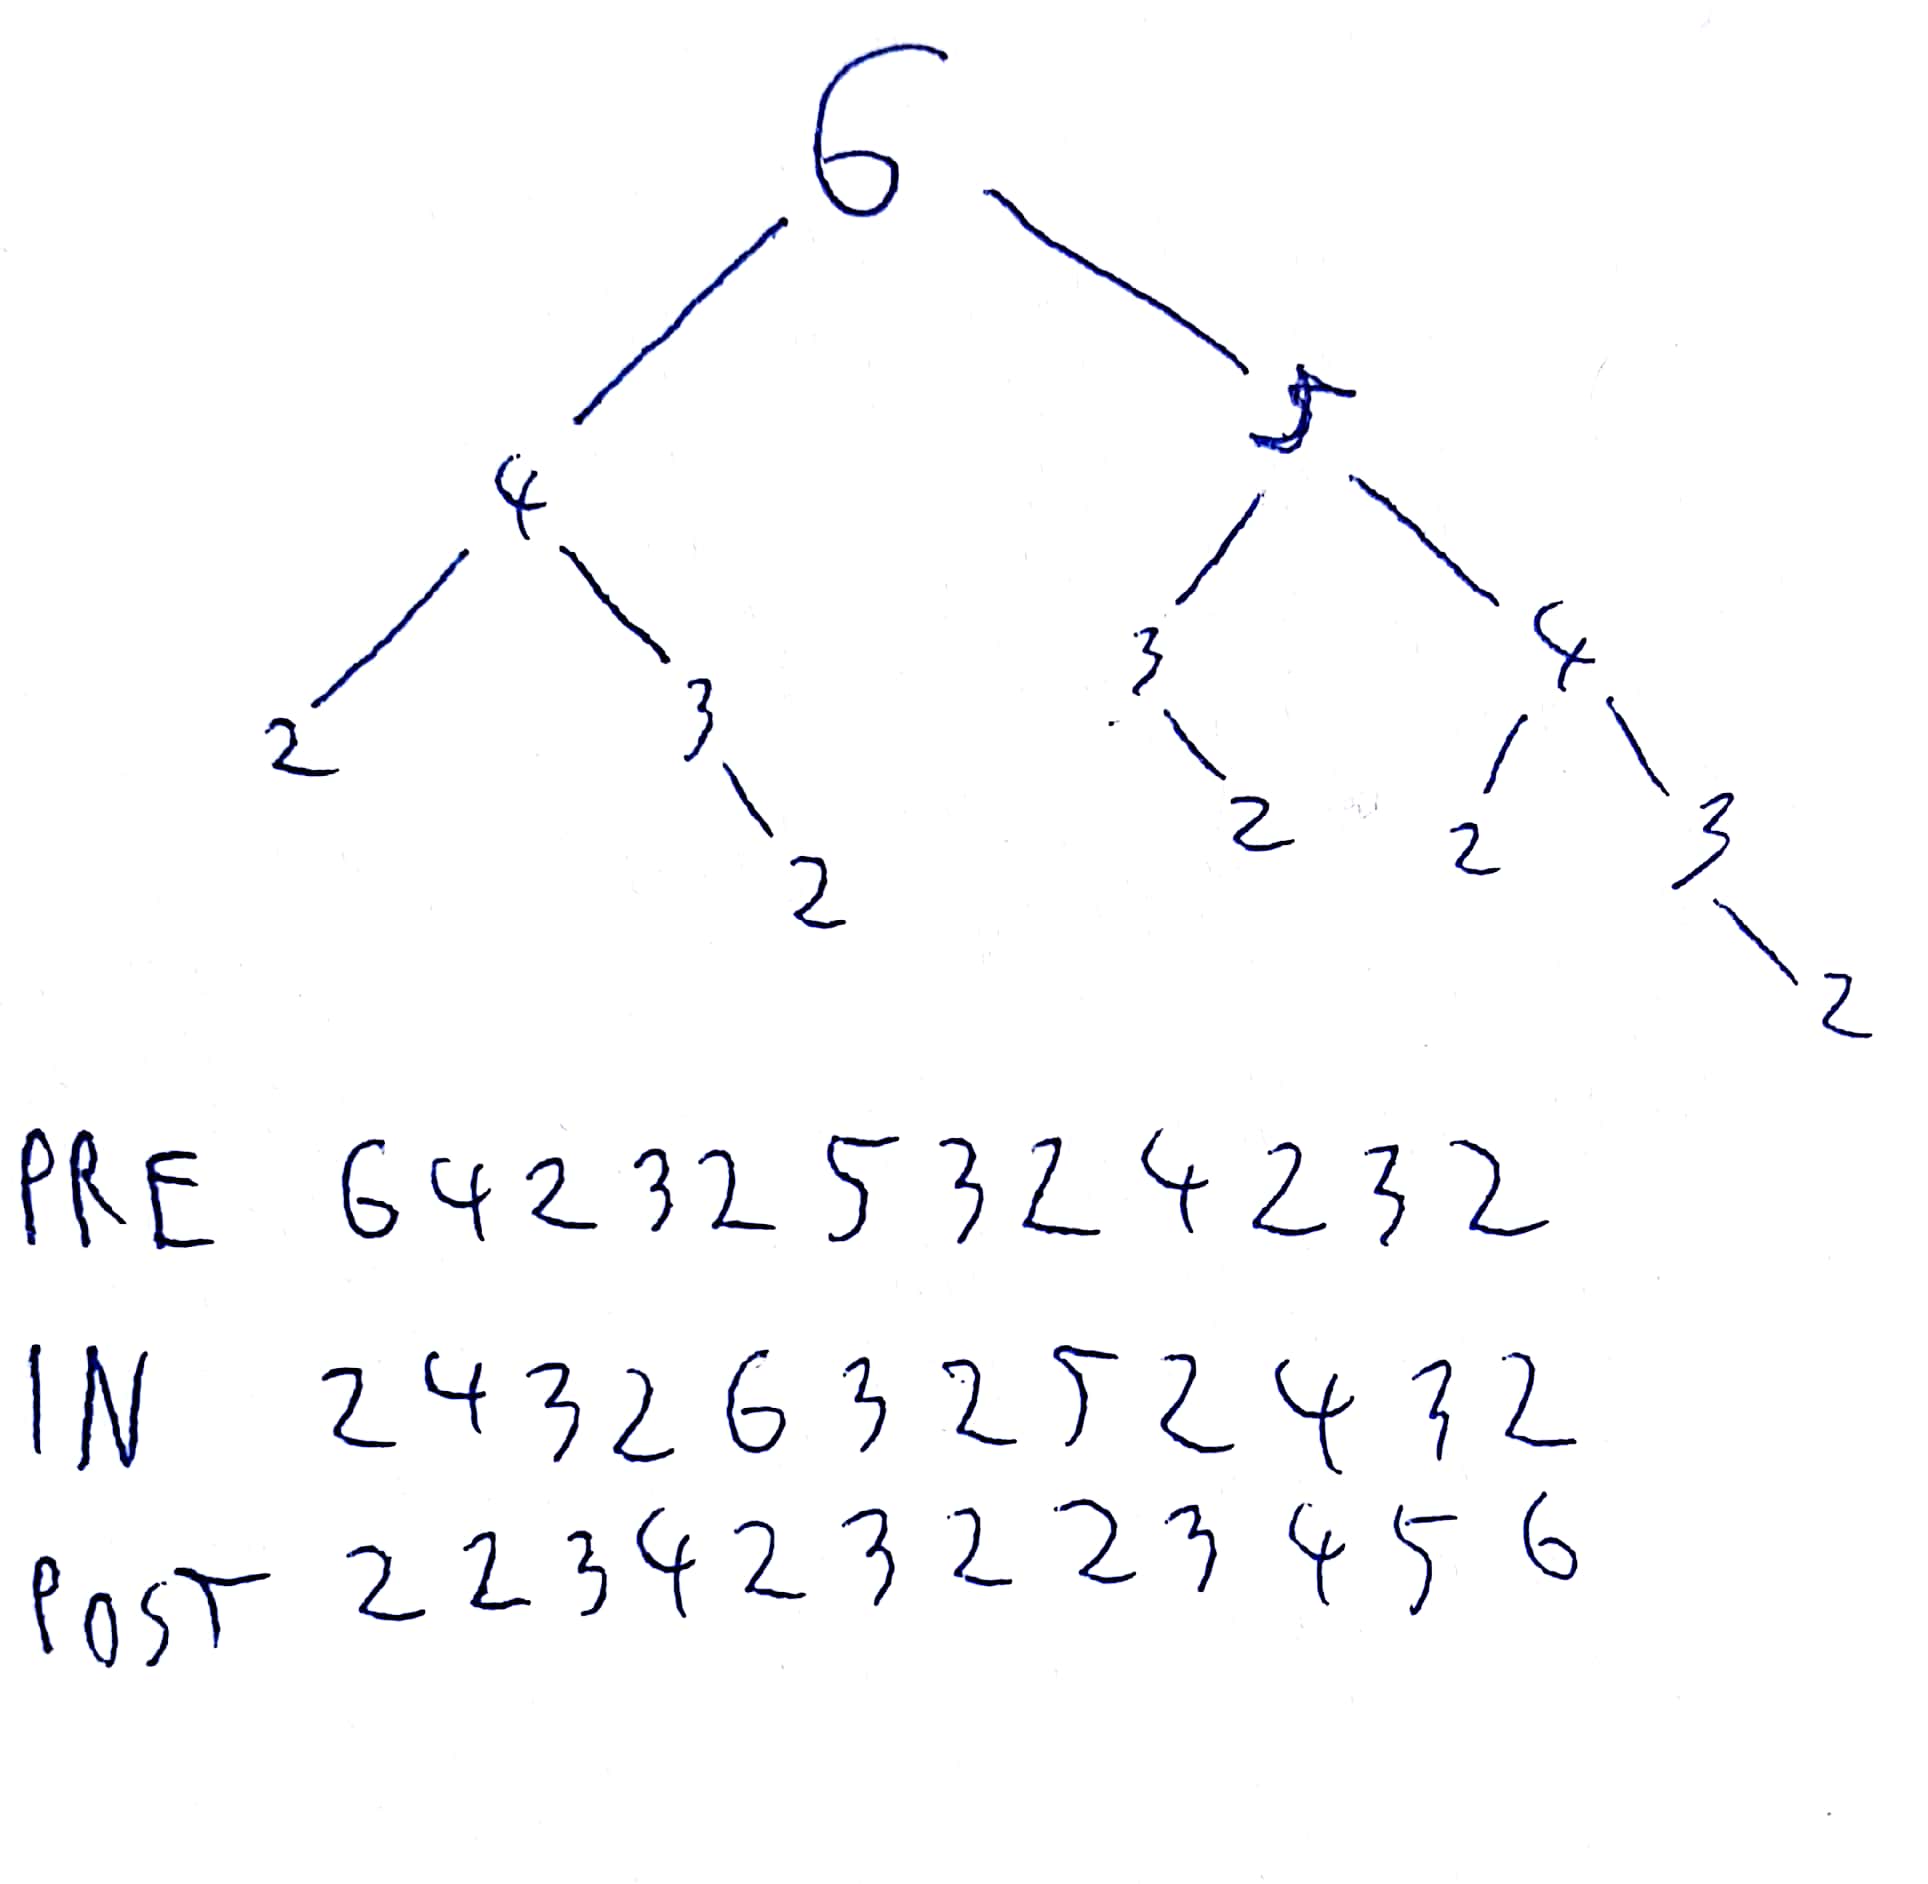 6
5
4
3 4
2 3
2 2 3
2
2
PRE 6 4 2 3 2 5 3 2 4 2 3 2
IN 2 4 3 2 6 3 2 5 2 4 3 2
POST 2 2 3 4 2 3 2 2 3 4 5 6